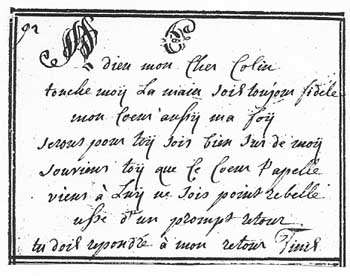 92
Adieu mon Cher Colin
touche moy La main soit toujour fidele
mon Coeur aussy ma foy
serons pour toy sois bien sur de moy
souviens toy que Ce Coeur t'apelle
viens à Luy ne sois point rebelle
usse d'un prompt retour
tu doit repondre à mon retour Finis